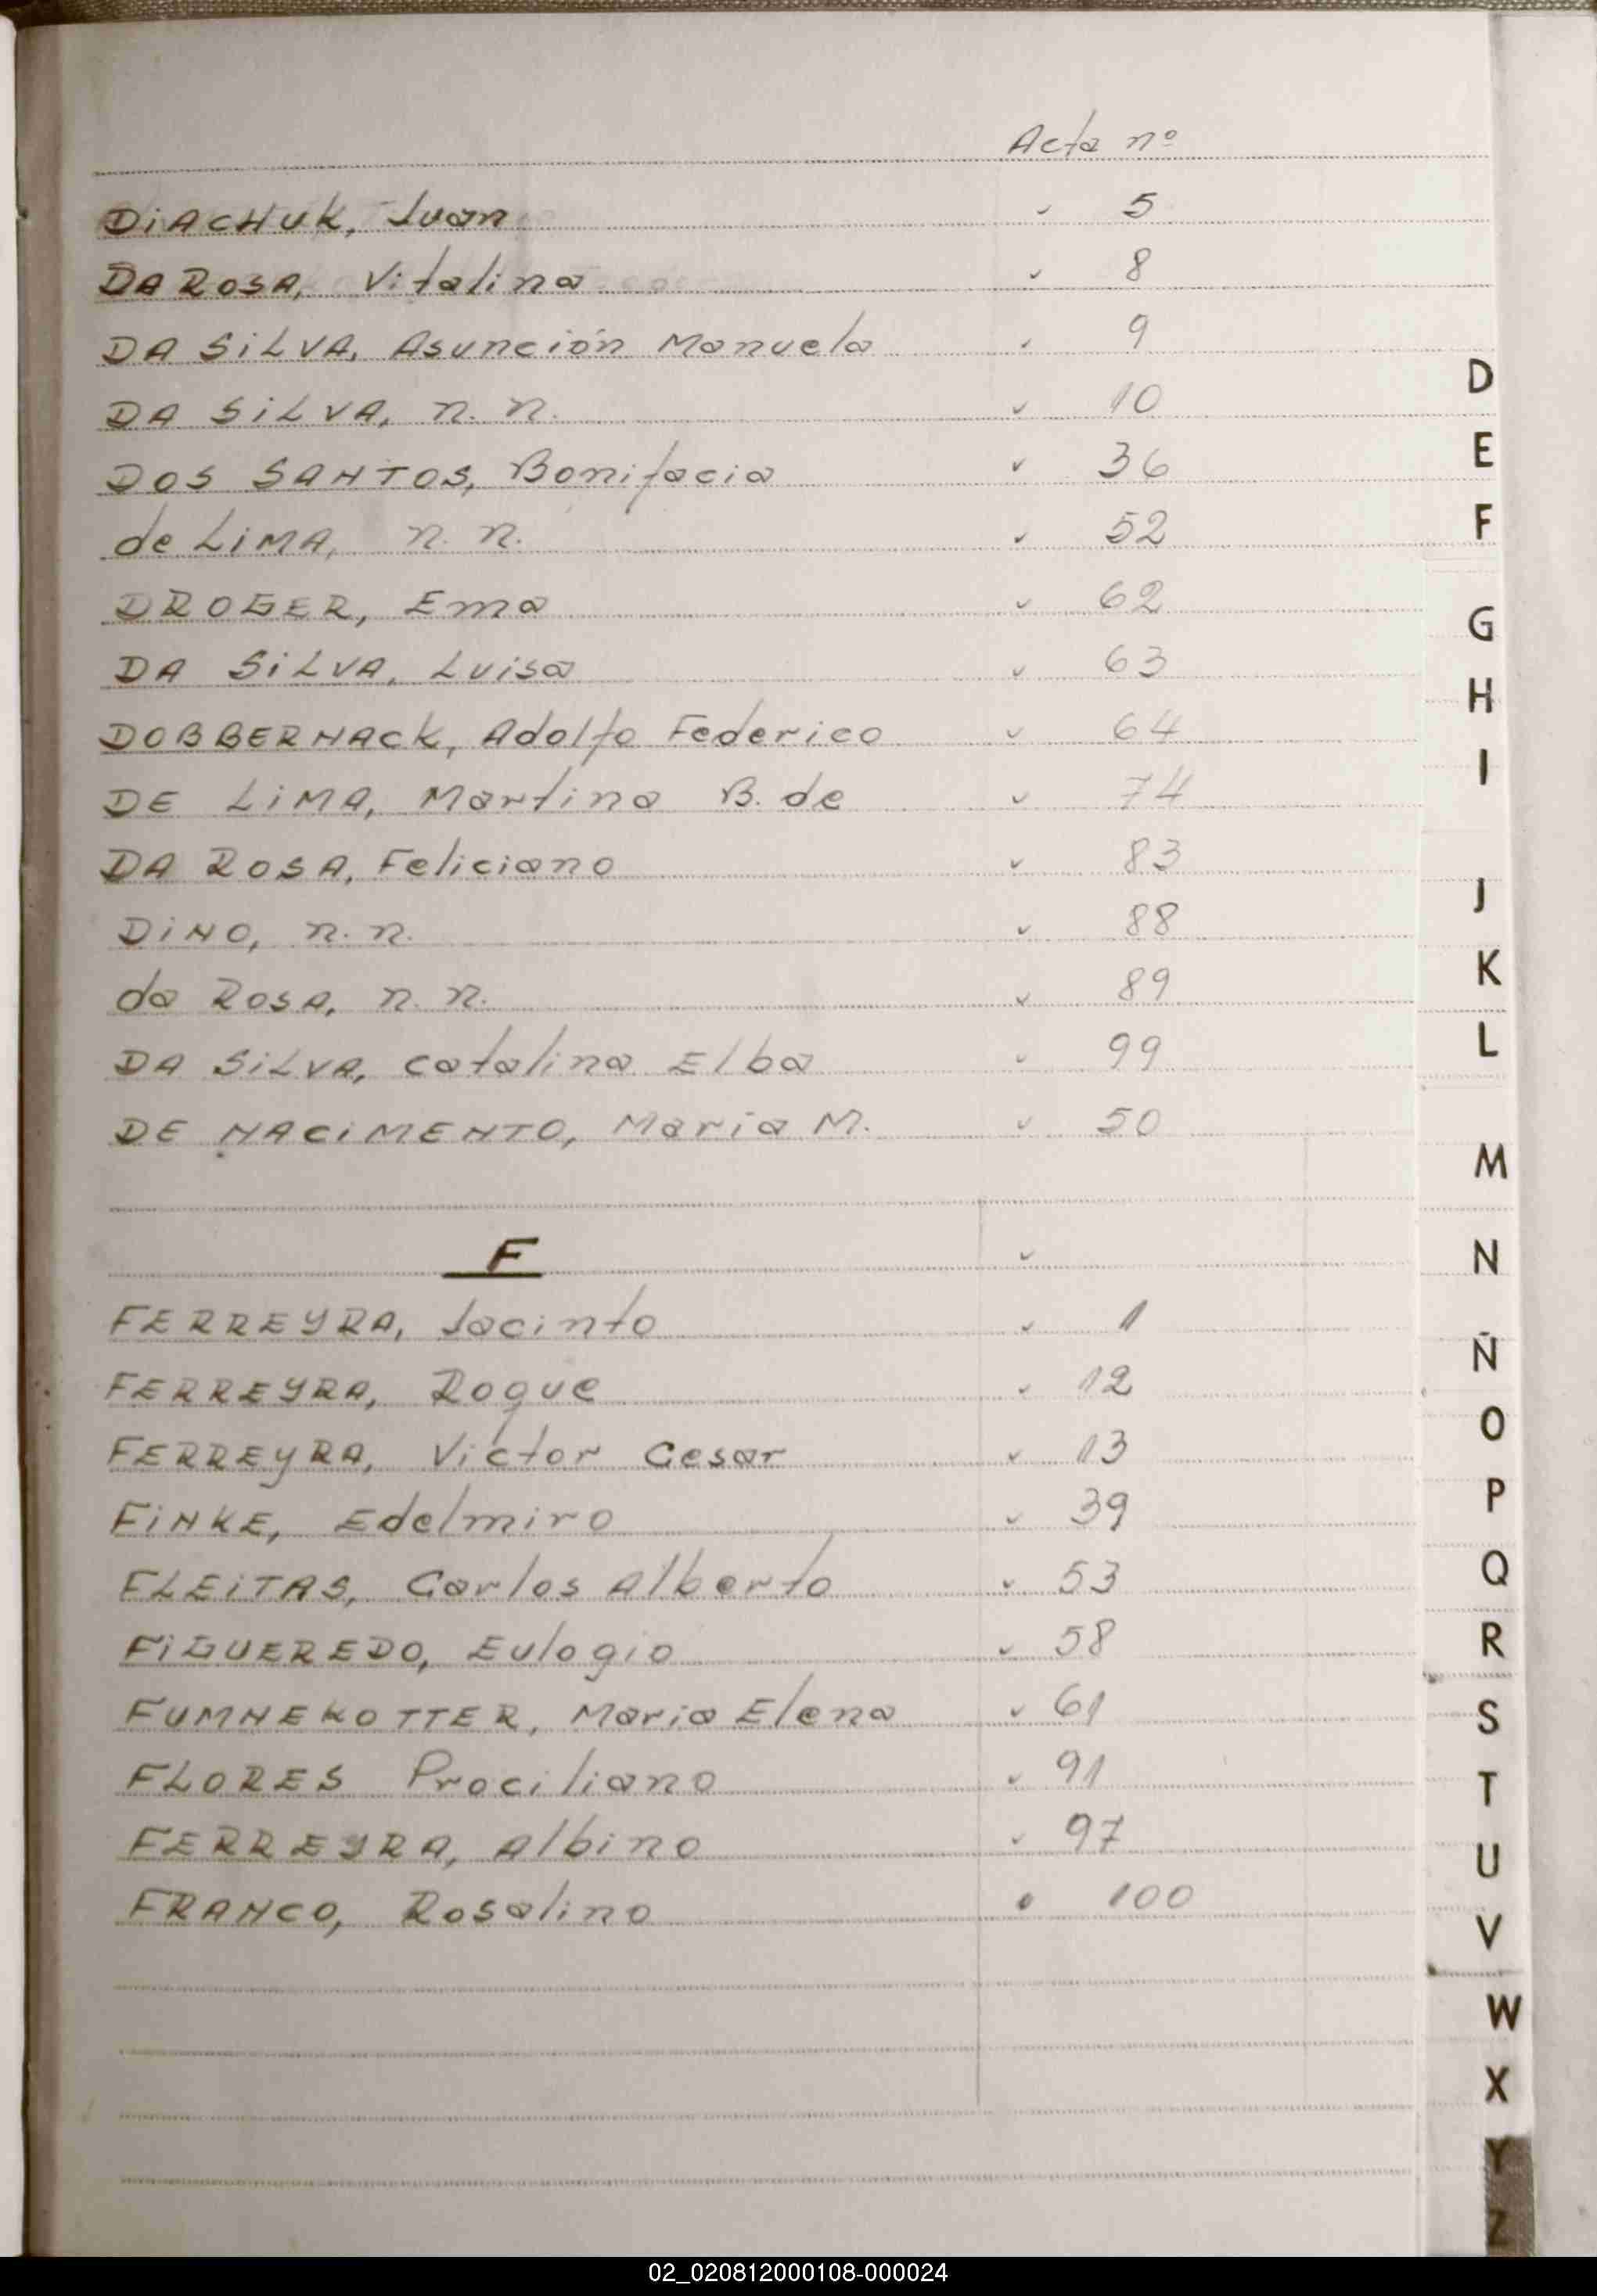 Acta nº
DiACHUK, Juan ✓ 5
DA ROSA, Vitalina ✓ 8
DA SiLVA, Asunción Manuela ✓ 9
DA SiLVA, n. n. ✓ 10
DOS SANTOS, Bonifacia ✓ 36
de LiMA, n. n. ✓ 52
DROGER, Ema ✓ 62
DA SiLVA, Luisa ✓ 63
DOBBERNACK, Adolfo Federico ✓ 64
DE LiMA, Martina B. de ✓ 74
DA ROSA, Feliciano ✓ 83
DiNO, n. n. ✓ 88
da ROSA, n. n. ✓ 89
DA SiLVA, Catalina Elba ✓ 99
DE NACiMENTO, Maria M. ✓ 50
F ✓
FERREYRA, Jacinto ✓ 1
FERREYRA, Roque ✓ 12
FERREYRA, Victor Cesar ✓ 13
FiNKE, Edelmiro ✓ 39
FLEiTAS, Carlos Alberto ✓ 53
FiGUEREDO, Eulogio ✓ 58
FUMNEKOTTER, Maria Elena ✓ 61
FLORES Prociliano ✓ 91
FERREYRA, Albino ✓ 97
FRANCO, Rosalino 100
D
E
F
G
H
I
J
K
L
M
N
Ñ
O
P
Q
R
S
T
U
V
W
X
Y
Z
02_020812000108-000024